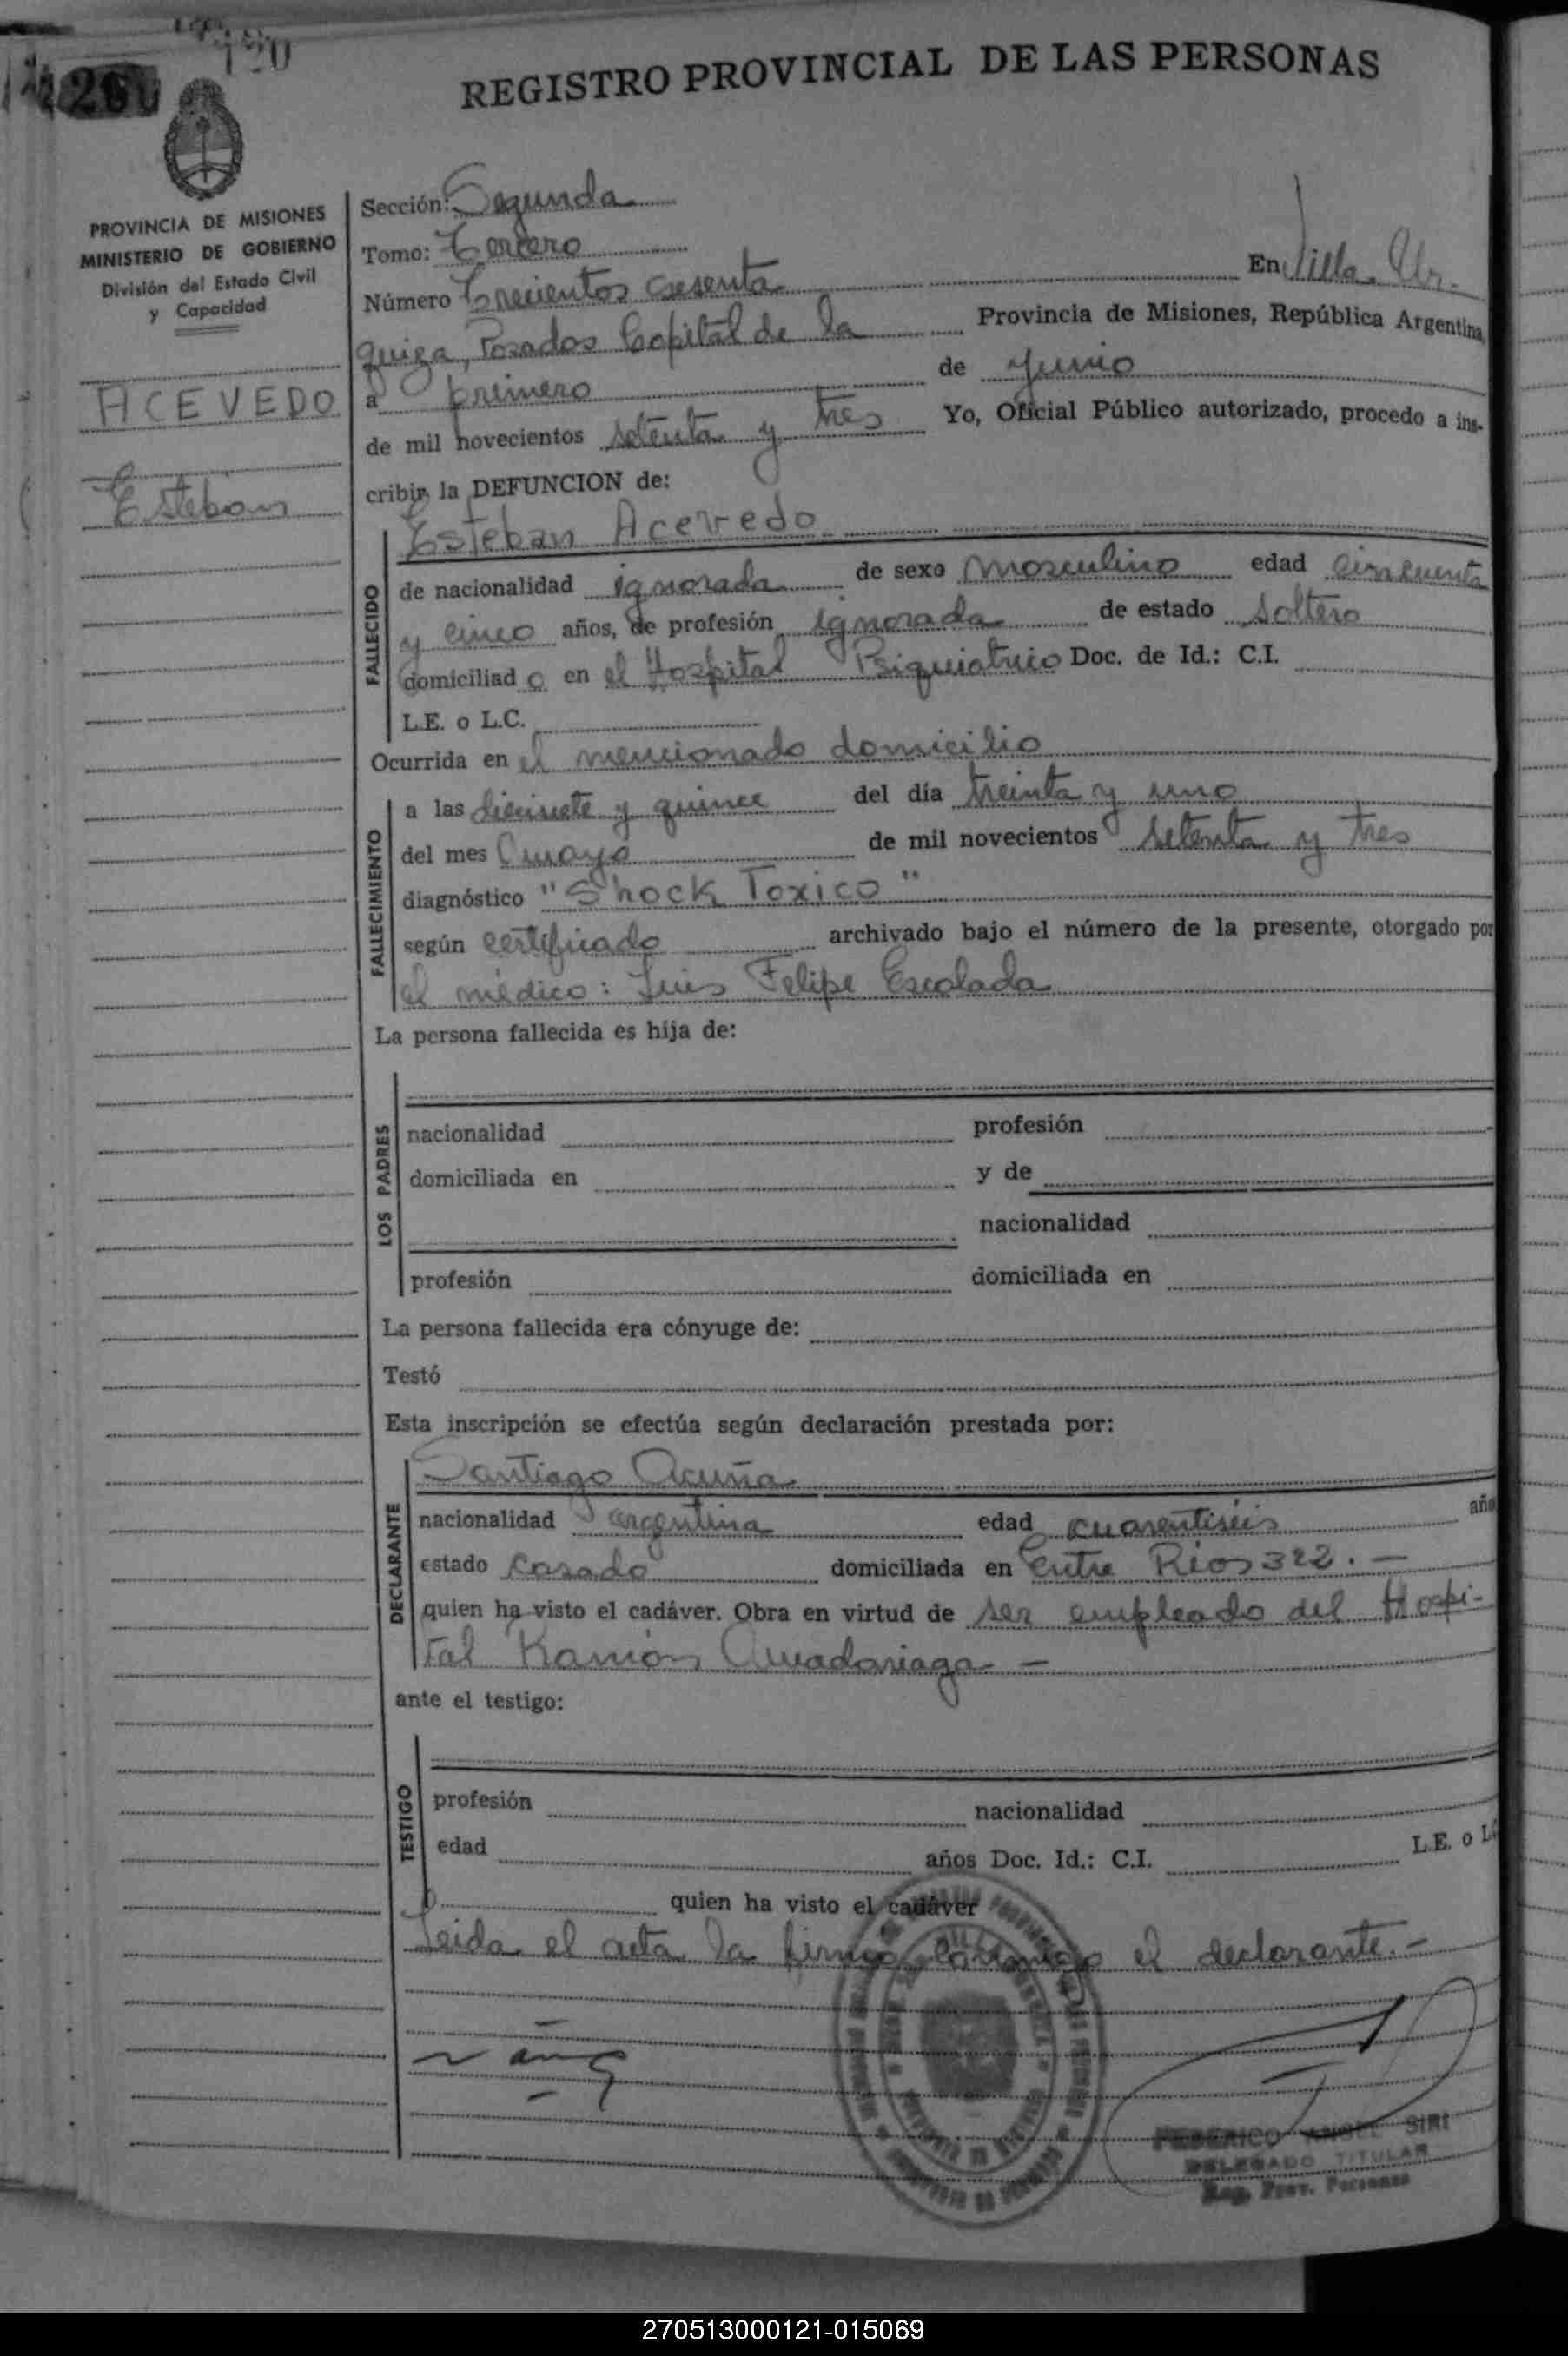 190
REGISTRO PROVINCIAL DE LAS PERSONAS
PROVINCIA DE MISIONES
MINISTERIO DE GOBIERNO
División del Estado Civil
y Capacidad
ACEVEDO
Esteban
Sección: Segunda
Tomo: Tercero
Número Trecientos sesenta En Villa Ur-
quiza, Posadas Capital de la Provincia de Misiones, República Argentina,
a primero de Junio
de mil novecientos setenta y tres Yo, Oficial Público autorizado, procedo a ins-
cribir la DEFUNCION de:
Esteban Acevedo
FALLECIDO
de nacionalidad ignorada de sexo masculino edad cincuenta
y cinco años, de profesión ignorada de estado soltero
domiciliad o en el Hospital Psiquiatrico Doc. de Id.: C.I.
L.E. o L.C.
Ocurrida en el mencionado domicilio
FALLECIMIENTO
a las diecisiete y quince del día treinta y uno
del mes mayo de mil novecientos setenta y tres
diagnóstico "Shock Toxico"
según certificado archivado bajo el número de la presente, otorgado por
el médico: Luis Felipe Escolada
La persona fallecida es hija de:
LOS PADRES
nacionalidad profesión
domiciliada en y de
nacionalidad
profesión domiciliada en
La persona fallecida era cónyuge de:
Testó
Esta inscripción se efectúa según declaración prestada por:
DECLARANTE
Santiago Acuña
nacionalidad argentina edad cuarentiséis año
estado casado domiciliada en Entre Rios 322. —
quien ha visto el cadáver. Obra en virtud de ser empleado del Hospi-
tal Ramón Madariaga —
ante el testigo:
TESTIGO
profesión nacionalidad
edad años Doc. Id.: C.I. L.E. o L
quien ha visto el cadáver
Leida el acta la firma conmigo el declarante. —
FEDERICO ANGEL SIRI
DELEGADO TITULAR
Reg. Prov. Personas
270513000121-015069